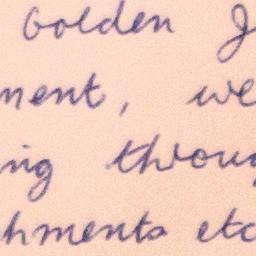 Golden J
ment, we
ing throug
hments etc